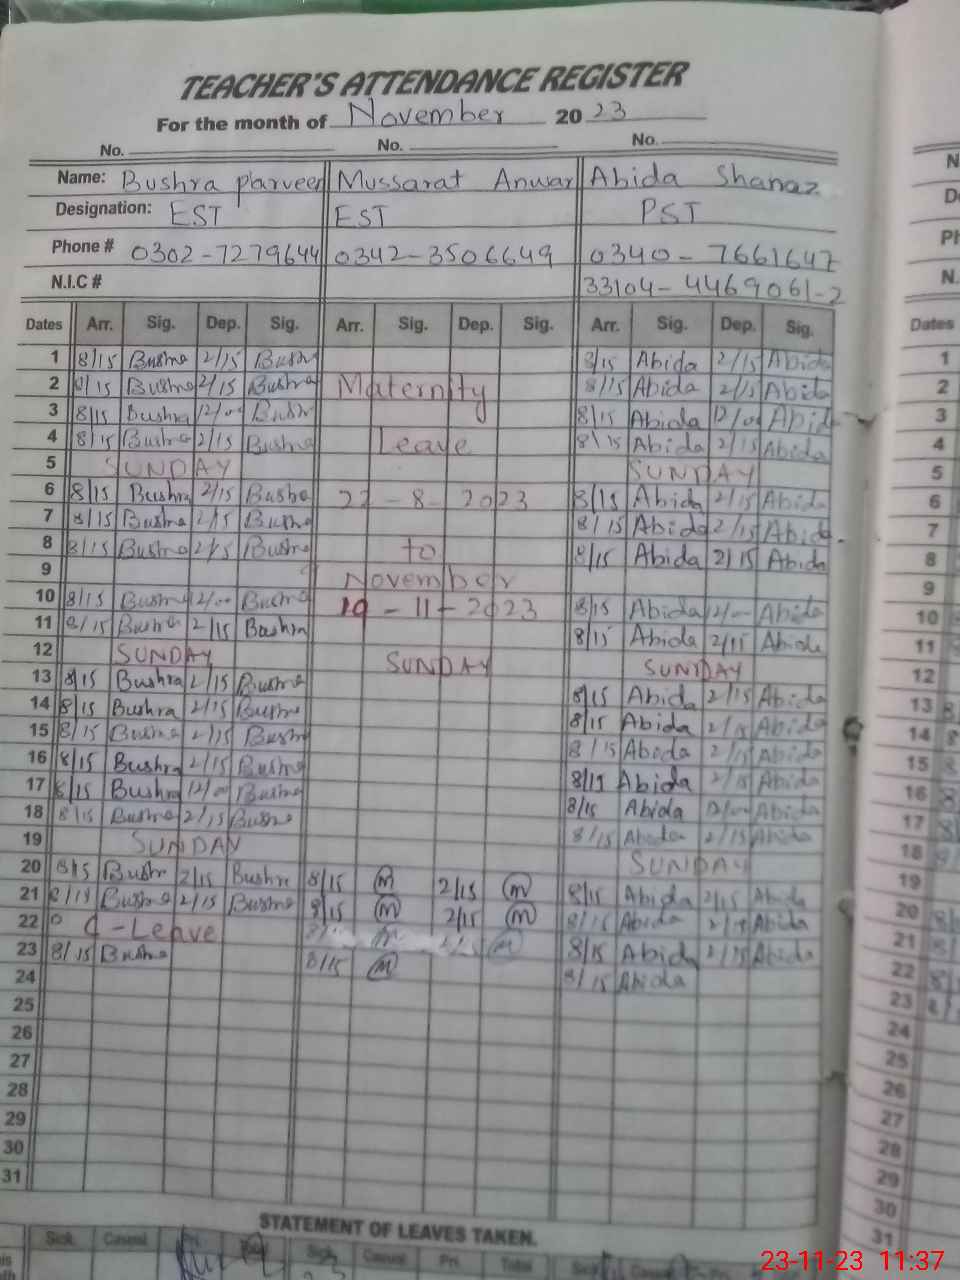 TEACHER'S ATTENDANCE REGISTER
For the month of November 2023
No. No. No.
Name: Bushra parveen Mussarat Anwar Abida Shanaz
Designation: EST EST PST
Phone # 0302-7279644 0342-3506649 0340-7661647
N.I.C # 33104-4469061-2
Dates Arr. Sig. Dep. Sig. Arr. Sig. Dep. Sig. Arr. Sig. Dep. Sig. Dates
1 8/15 Bushra 2/15 Bushra 8/15 Abida 2/15 Abida 1
2 8/15 Bushra 2/15 Bushra Maternity 8/15 Abida 2/15 Abida 2
3 8/15 Bushra 12/00 Bushra 8/15 Abida 12/00 Abida 3
4 8/15 Bushra 2/15 Bushra Leave 8/15 Abida 2/15 Abida 4
5 SUNDAY SUNDAY 5
6 8/15 Bushra 2/15 Bushra -8-2023 8/15 Abida 2/15 Abida 6
7 8/15 Bushra 2/15 Bushra 8/15 Abida 2/15 Abida 7
8 8/15 Bushra 2/15 Bushra to 8/15 Abida 2/15 Abida 8
9 November 9
10 8/15 Bushra 2/00 Bushra 19-11-2023 8/15 Abida 12/00 Abida 10
11 8/15 Bushra 2/15 Bushra 8/15 Abida 2/15 Abida 11
12 SUNDAY SUNDAY SUNDAY 12
13 8/15 Bushra 2/15 Bushra 8/15 Abida 2/15 Abida 13
14 8/15 Bushra 2/15 Bushra 8/15 Abida 2/15 Abida 14
15 8/15 Bushra 2/15 Bushra 8/15 Abida 2/15 Abida 15
16 8/15 Bushra 2/15 Bushra 8/15 Abida 2/15 Abida 16
17 8/15 Bushra 12/00 Bushra 8/15 Abida 12/00 Abida 17
18 8/15 Bushra 2/15 Bushra 8/15 Abida 2/15 Abida 18
19 SUNDAY SUNDAY 19
20 8/15 Bushra 2/15 Bushra 8/15 m 2/15 m 8/15 Abida 2/15 Abida 20
21 8/15 Bushra 2/15 Bushra 8/15 m 2/15 m 8/15 Abida 2/15 Abida 21
22 C-Leave m m 8/15 Abida 2/15 Abida 22
23 8/15 Bushra 8/15 m 8/15 Abida 23
24 24
25 25
26 26
27 27
28 28
29 29
30 30
31 31
STATEMENT OF LEAVES TAKEN.
Sick Casual Sick Casual Pri. Total
23-11-23 11:37